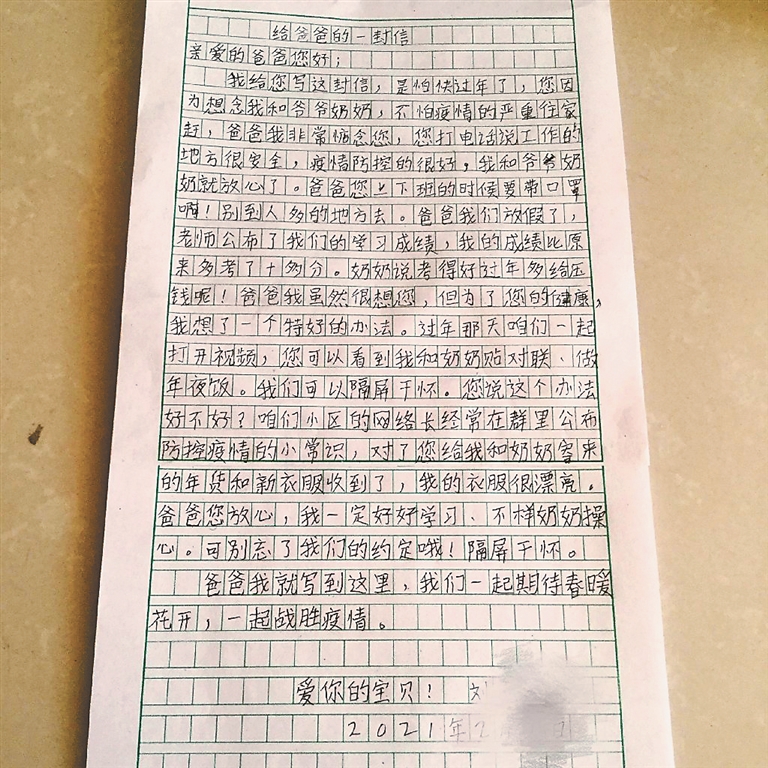 给爸爸的一封信
亲爱的爸爸您好；
我给您写这封信，是怕快过年了，您因
为想念我和爷爷奶奶，不怕疫情的严重往家
赶，爸爸我非常惦念您，您打电话说工作的
地方很安全，疫情防控的很好，我和爷爷奶
奶就放心了。爸爸您上下班的时侯要带口罩
啊！别到人多的地方去。爸爸我们放假了，
老师公布了我们的学习成绩，我的成绩比原
来多考了十多分。奶奶说考得好过年多给压
钱呢！爸爸我虽然很想您，但为了您的健康，
我想了一个特好的办法。过年那天咱们一起
打开视频，您可以看到我和奶奶贴对联、做
年夜饭。我们可以隔屏干怀。您说这个办法
好不好？咱们小区的网络长经常在群里公布
防控疫情的小常识，对了您给我和奶奶寄来
的年货和新衣服收到了，我的衣服很漂亮。
爸爸您放心，我一定好好学习、不样奶奶操
心。可别忘了我们的约定哦！隔屏干怀。
爸爸我就写到这里，我们一起期待春暖
花开，一起战胜疫情。
爱你的宝贝！刘
2021年2